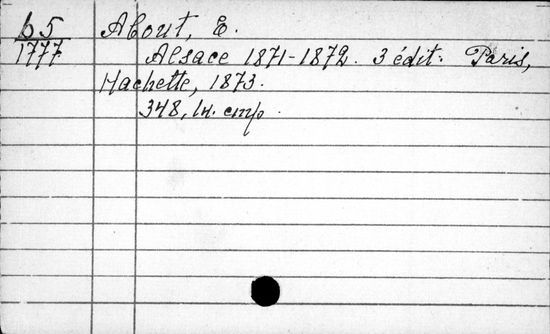 b 5
1777
About, E.
Alsace 1871-1872. 3 édit. Paris,
Hachette, 1873.
348, IH. стр.